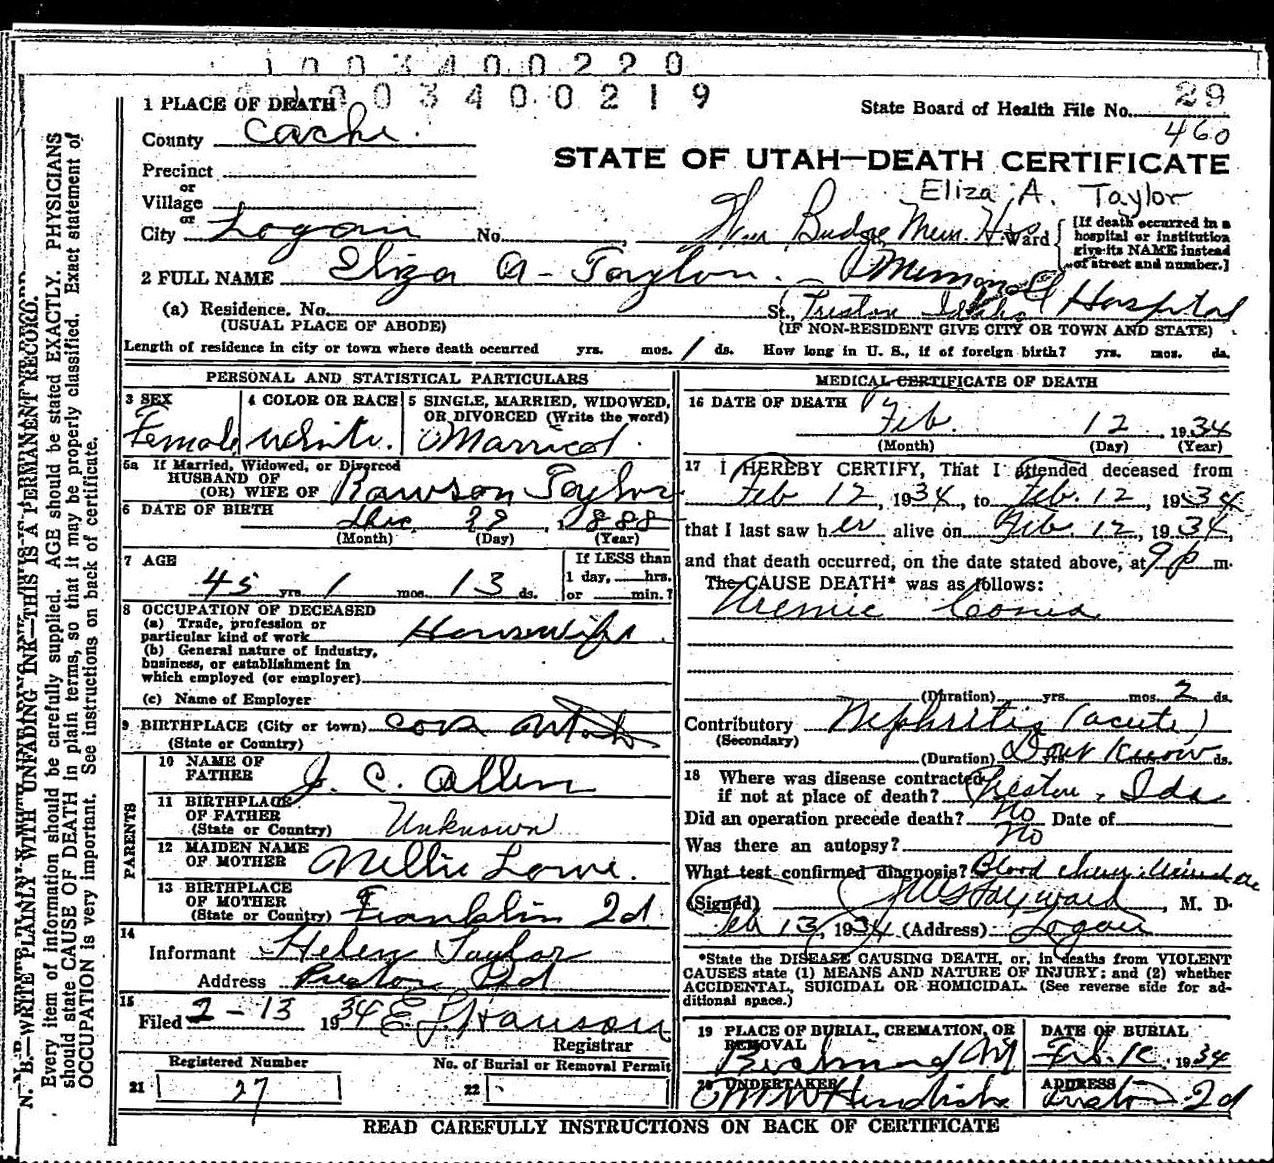 1003400220
1003400219
1 PLACE OF DEATH
State Board of Health File No. 29
460
County Cache.
STATE OF UTAH—DEATH CERTIFICATE
Precinct
or
Village
Eliza A. Taylor
or
City Logan No. Wm Budge Mem. Hos Ward
[If death occurred in a hospital or institution give its NAME instead of street and number.]
2 FULL NAME Eliza A - Taylor. Memorial Hospital
(a) Residence. No. St., Preston Idaho
(USUAL PLACE OF ABODE) (IF NON-RESIDENT GIVE CITY OR TOWN AND STATE)
Length of residence in city or town where death occurred yrs. mos. 1 ds. How long in U. S., if of foreign birth? yrs. mos. ds.
PERSONAL AND STATISTICAL PARTICULARS
3 SEX
Female
4 COLOR OR RACE
White.
5 SINGLE, MARRIED, WIDOWED, OR DIVORCED (Write the word)
Married
5a If Married, Widowed, or Divorced
HUSBAND OF
(OR) WIFE OF Rawson Taylor
6 DATE OF BIRTH Dec 29, 1888
(Month) (Day) (Year)
7 AGE
45 yrs. 1 mos. 13 ds.
If LESS than
1 day, hrs.
or min.?
8 OCCUPATION OF DECEASED
(a) Trade, profession or
particular kind of work Housewife.
(b) General nature of industry,
business, or establishment in
which employed (or employer)
(c) Name of Employer
9 BIRTHPLACE (City or town) Cove
(State or Country)
PARENTS
10 NAME OF
FATHER J. C. Allen
11 BIRTHPLACE
OF FATHER
(State or Country) Unknown
12 MAIDEN NAME
OF MOTHER Nellie Lowe.
13 BIRTHPLACE
OF MOTHER
(State or Country) Franklin Id.
14
Informant Helen Taylor
Address Preston Id
15
Filed 2-13 1934 E L Hanson
Registrar
Registered Number
21 27
No. of Burial or Removal Permit
22
MEDICAL CERTIFICATE OF DEATH
16 DATE OF DEATH
Feb. 12, 1934
(Month) (Day) (Year)
17 I HEREBY CERTIFY, That I attended deceased from
Feb 12, 1934, to Feb. 12, 1934
that I last saw her alive on Feb. 12, 1934,
and that death occurred, on the date stated above, at 9 p m.
The CAUSE DEATH* was as follows:
Uremic Coma
(Duration) yrs. mos. 2 ds.
Contributory Nephritis (acute)
(Secondary)
(Duration) Dont Know yrs. mos. ds.
18 Where was disease contracted
if not at place of death? Preston, Ida
Did an operation precede death? No Date of
Was there an autopsy? No
What test confirmed diagnosis? Blood chem.
(Signed) J W Hayward, M. D.
Feb 13, 1934 (Address) Logan
*State the DISEASE CAUSING DEATH, or, in deaths from VIOLENT
CAUSES state (1) MEANS AND NATURE OF INJURY; and (2) whether
ACCIDENTAL, SUICIDAL OR HOMICIDAL. (See reverse side for ad-
ditional space.)
19 PLACE OF BURIAL, CREMATION, OR
REMOVAL
Richmond
DATE OF BURIAL
Feb. 1934
20 UNDERTAKER
Hendricks
ADDRESS
Preston Id
READ CAREFULLY INSTRUCTIONS ON BACK OF CERTIFICATE
N. B.—WRITE PLAINLY WITH UNFADING INK—THIS IS A PERMANENT RECORD.
Every item of information should be carefully supplied. AGE should be stated EXACTLY. PHYSICIANS
should state CAUSE OF DEATH in plain terms, so that it may be properly classified. Exact statement of
OCCUPATION is very important. See instructions on back of certificate.